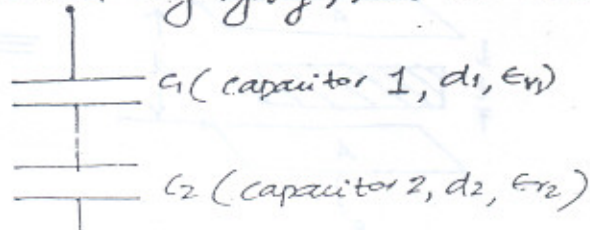 C1 (capacitor 1, d1, Er1)
C2 (capacitor 2, d2, Er2)